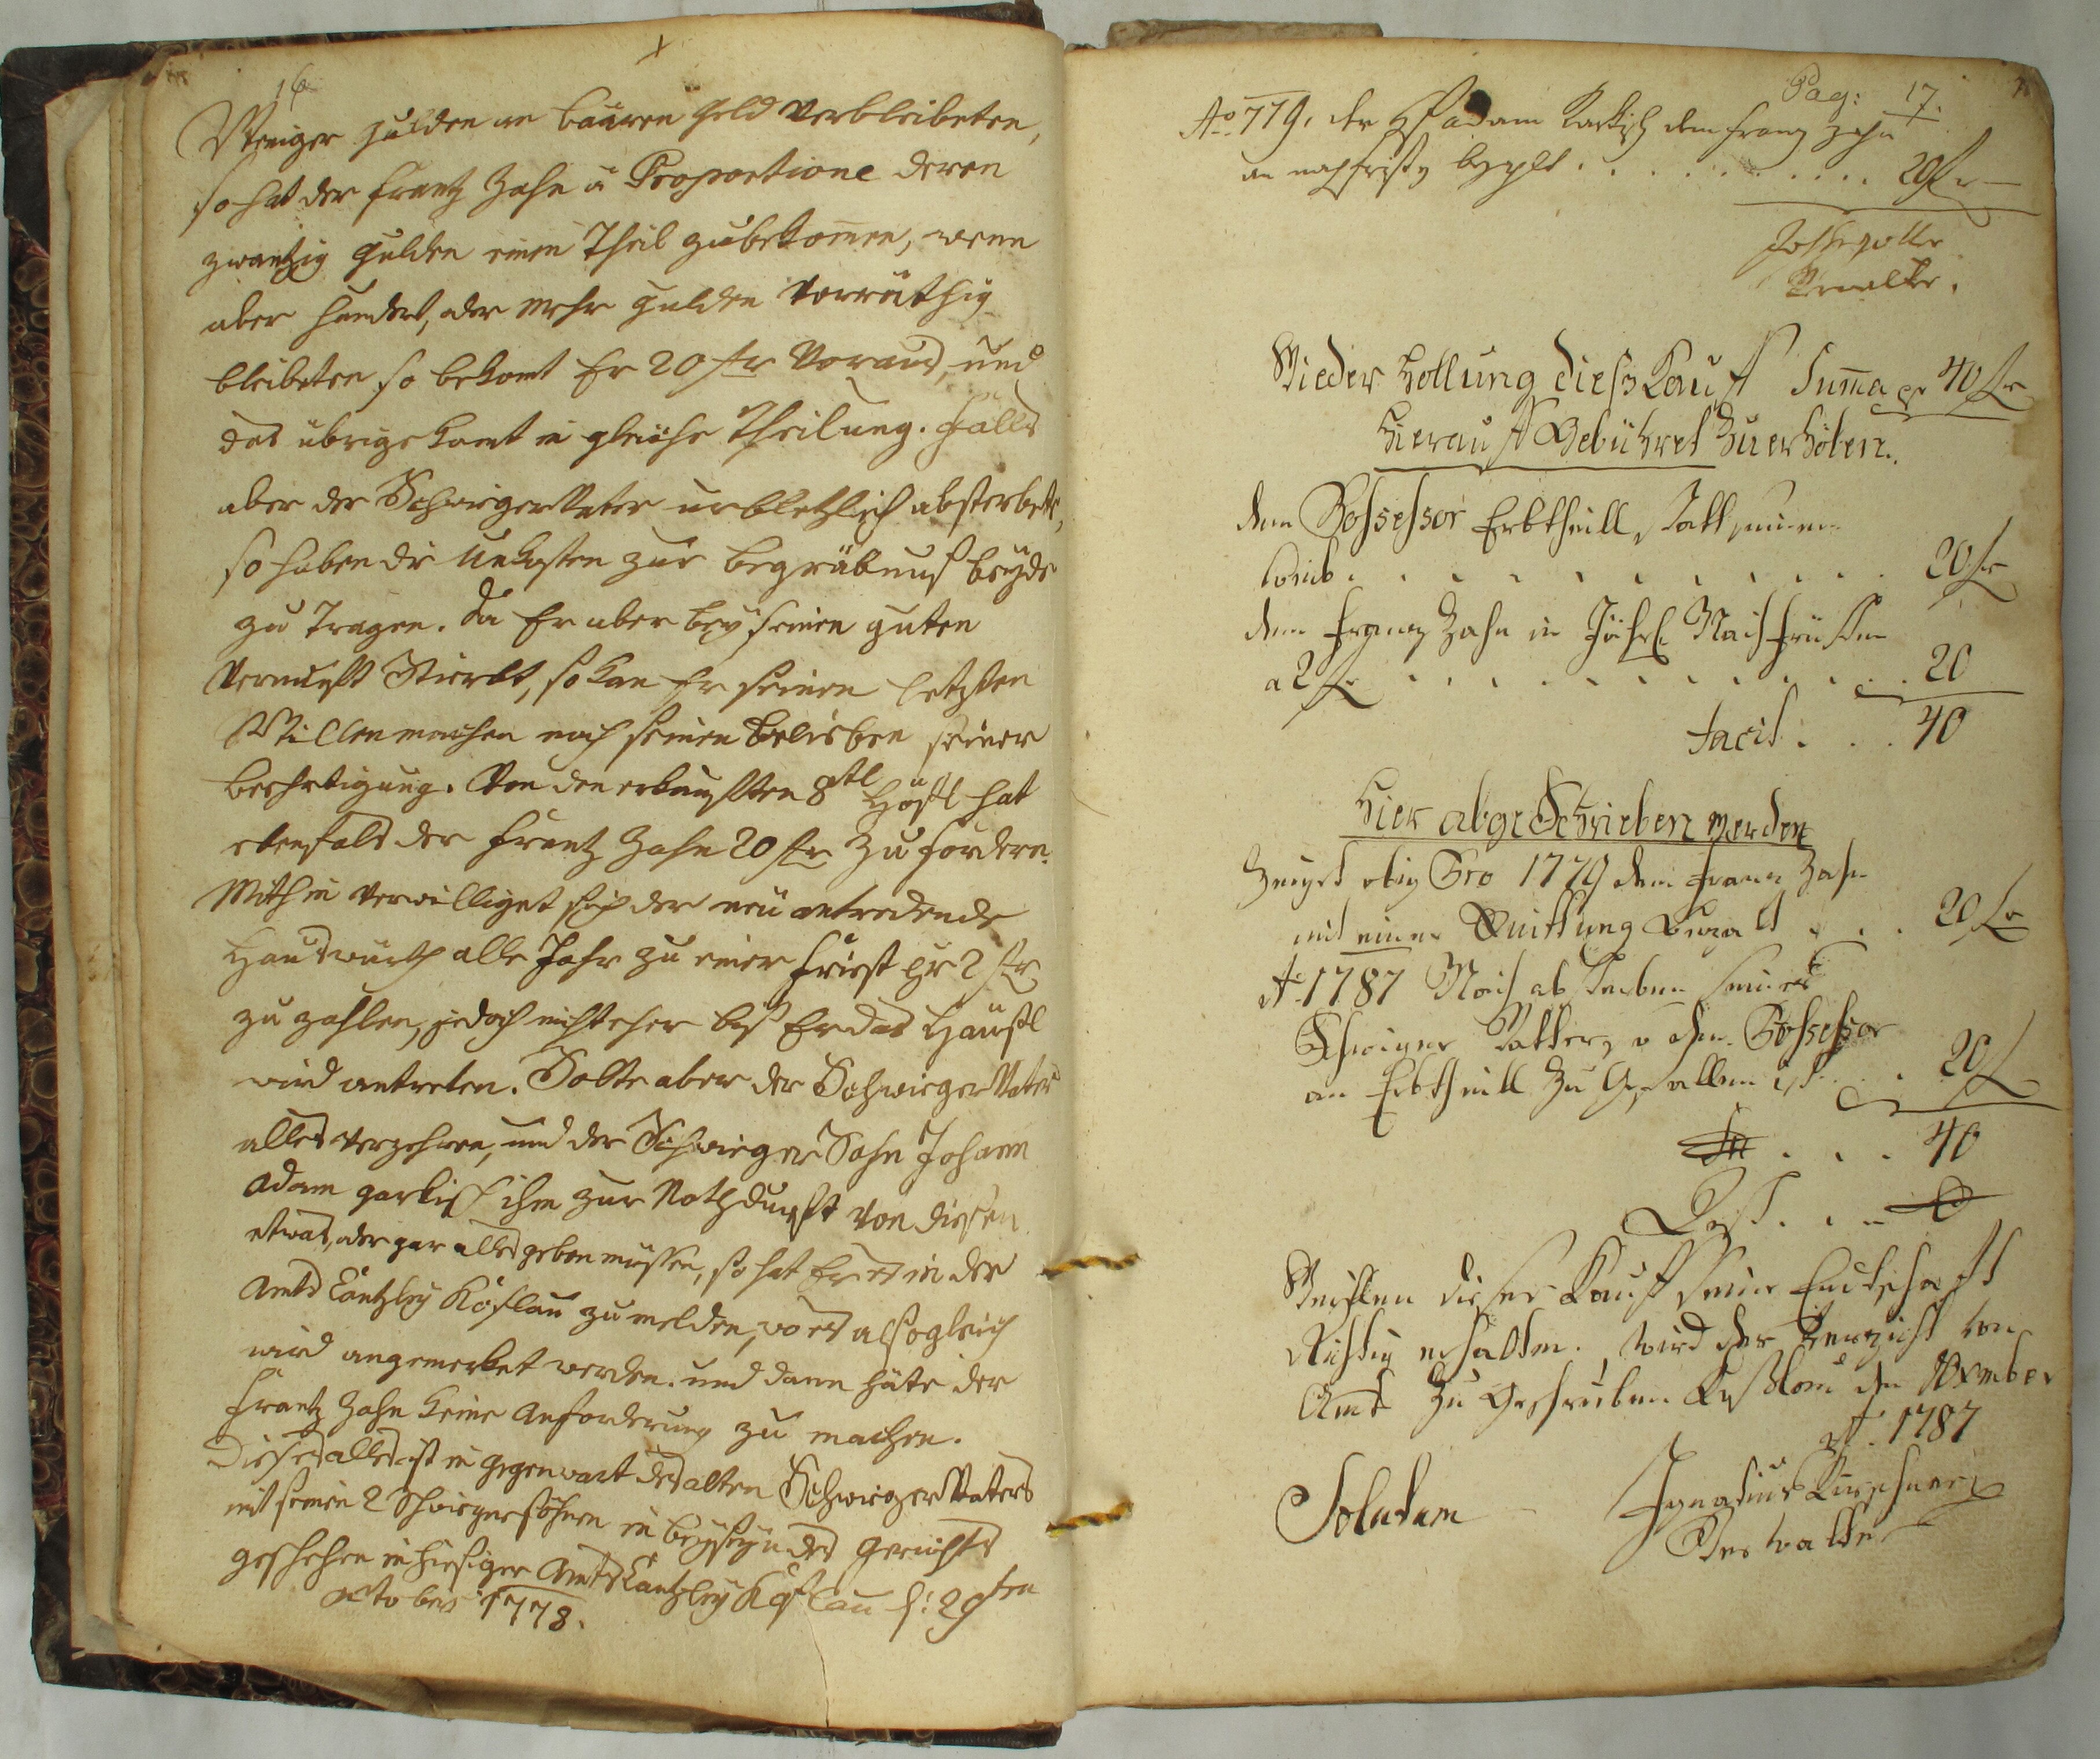 16
Weniger gulden an baaren geld verbleibeten,
so hat der Frantz Zahn a Proportione deren
zwantzig gulden einen Theil zubekom̄en, wenn
aber hundert, oder mehr gulden Vorräthig
bleibeten so bekomt Er 20 fr Voraus, und
das übrige komt in gleiche Theilung. Falls
aber der Schwieger Vater urbletzlich absterbete,
so haben die Unkosten zur begräbnus beyde
zu Tragen. Da Er aber bey seinen guten
Vernunft Stirbt, so kan Er seinen letzten
Willen machen nach seinen belieben seiner
berechtigung. Von den erkaufften 8tl Höfl hat
ebenfals der Frantz Zahn 20 fr zu fordern.
Mithin verwilliget sich der neu antredende
Hauswürth alle Jahr zu einer Friest pr 2 fr
zu zahlen, jedoch nicht eher bis Er das Häusl
wird antreten. Solte aber der Schwieger Vater
alles verzehren, und der Schwieger Sohn Johann
Adam garkisch ihm zur Nothdurfft von diesen
etwas, oder gar alles geben müssen, so hat Er es in der
Amts Cantzley Koslau zu melden, wo es alsogleich
wird angemerket werden. und dann häte der
Frantz Zahn keine Anforderung zu machen.
Dieses alles ist in gegenwart des alten Schwieger Vaters
mit seinen 2 Schwiegersöhnen in beyseyn des Gerichts
geschehen in hiesiger Amts Cantzley Koslau d: 29ten
octobris 1778.
Pag: 17.
Ao 779. der Adam Karkisch dem Frantz Zahn
an nachfristen bezahlt . . . . . . . . . . 20 fr —
Verwalter.
Wieder hollung dieß Kauff Sum̄a pr 40 fr
Hierauff Gebühret Zu erhöben.
dem Possessor Erbtheill statt seinen
Weib . . . . . . . . . . . 20 fr
dem Frantz Zahn in Jährl Nachfrüsten
a 2 fr . . . . . . . . . . . 20
facit . . . 40
Hier abgeschrieben werden
Zeugst obig Pro 1779 dem Frantz Zahn
mit einer Quittung bezalt . . . 20 fr
Ao 1787 Nach absterben seines
Schwiger Vatters, dem Possessor
an Erbtheill Zu Gefallen ist . . 20 f
. . . 40
Rest . . . 0
Weillen dieser Kauff seine Endschafft
Richtig erhalten, wird der Verzicht von
Amt Zu Geschrieben Koßlau den Xember
Ao 1787
Solutum
Ignatius Kirschner
Verwalter